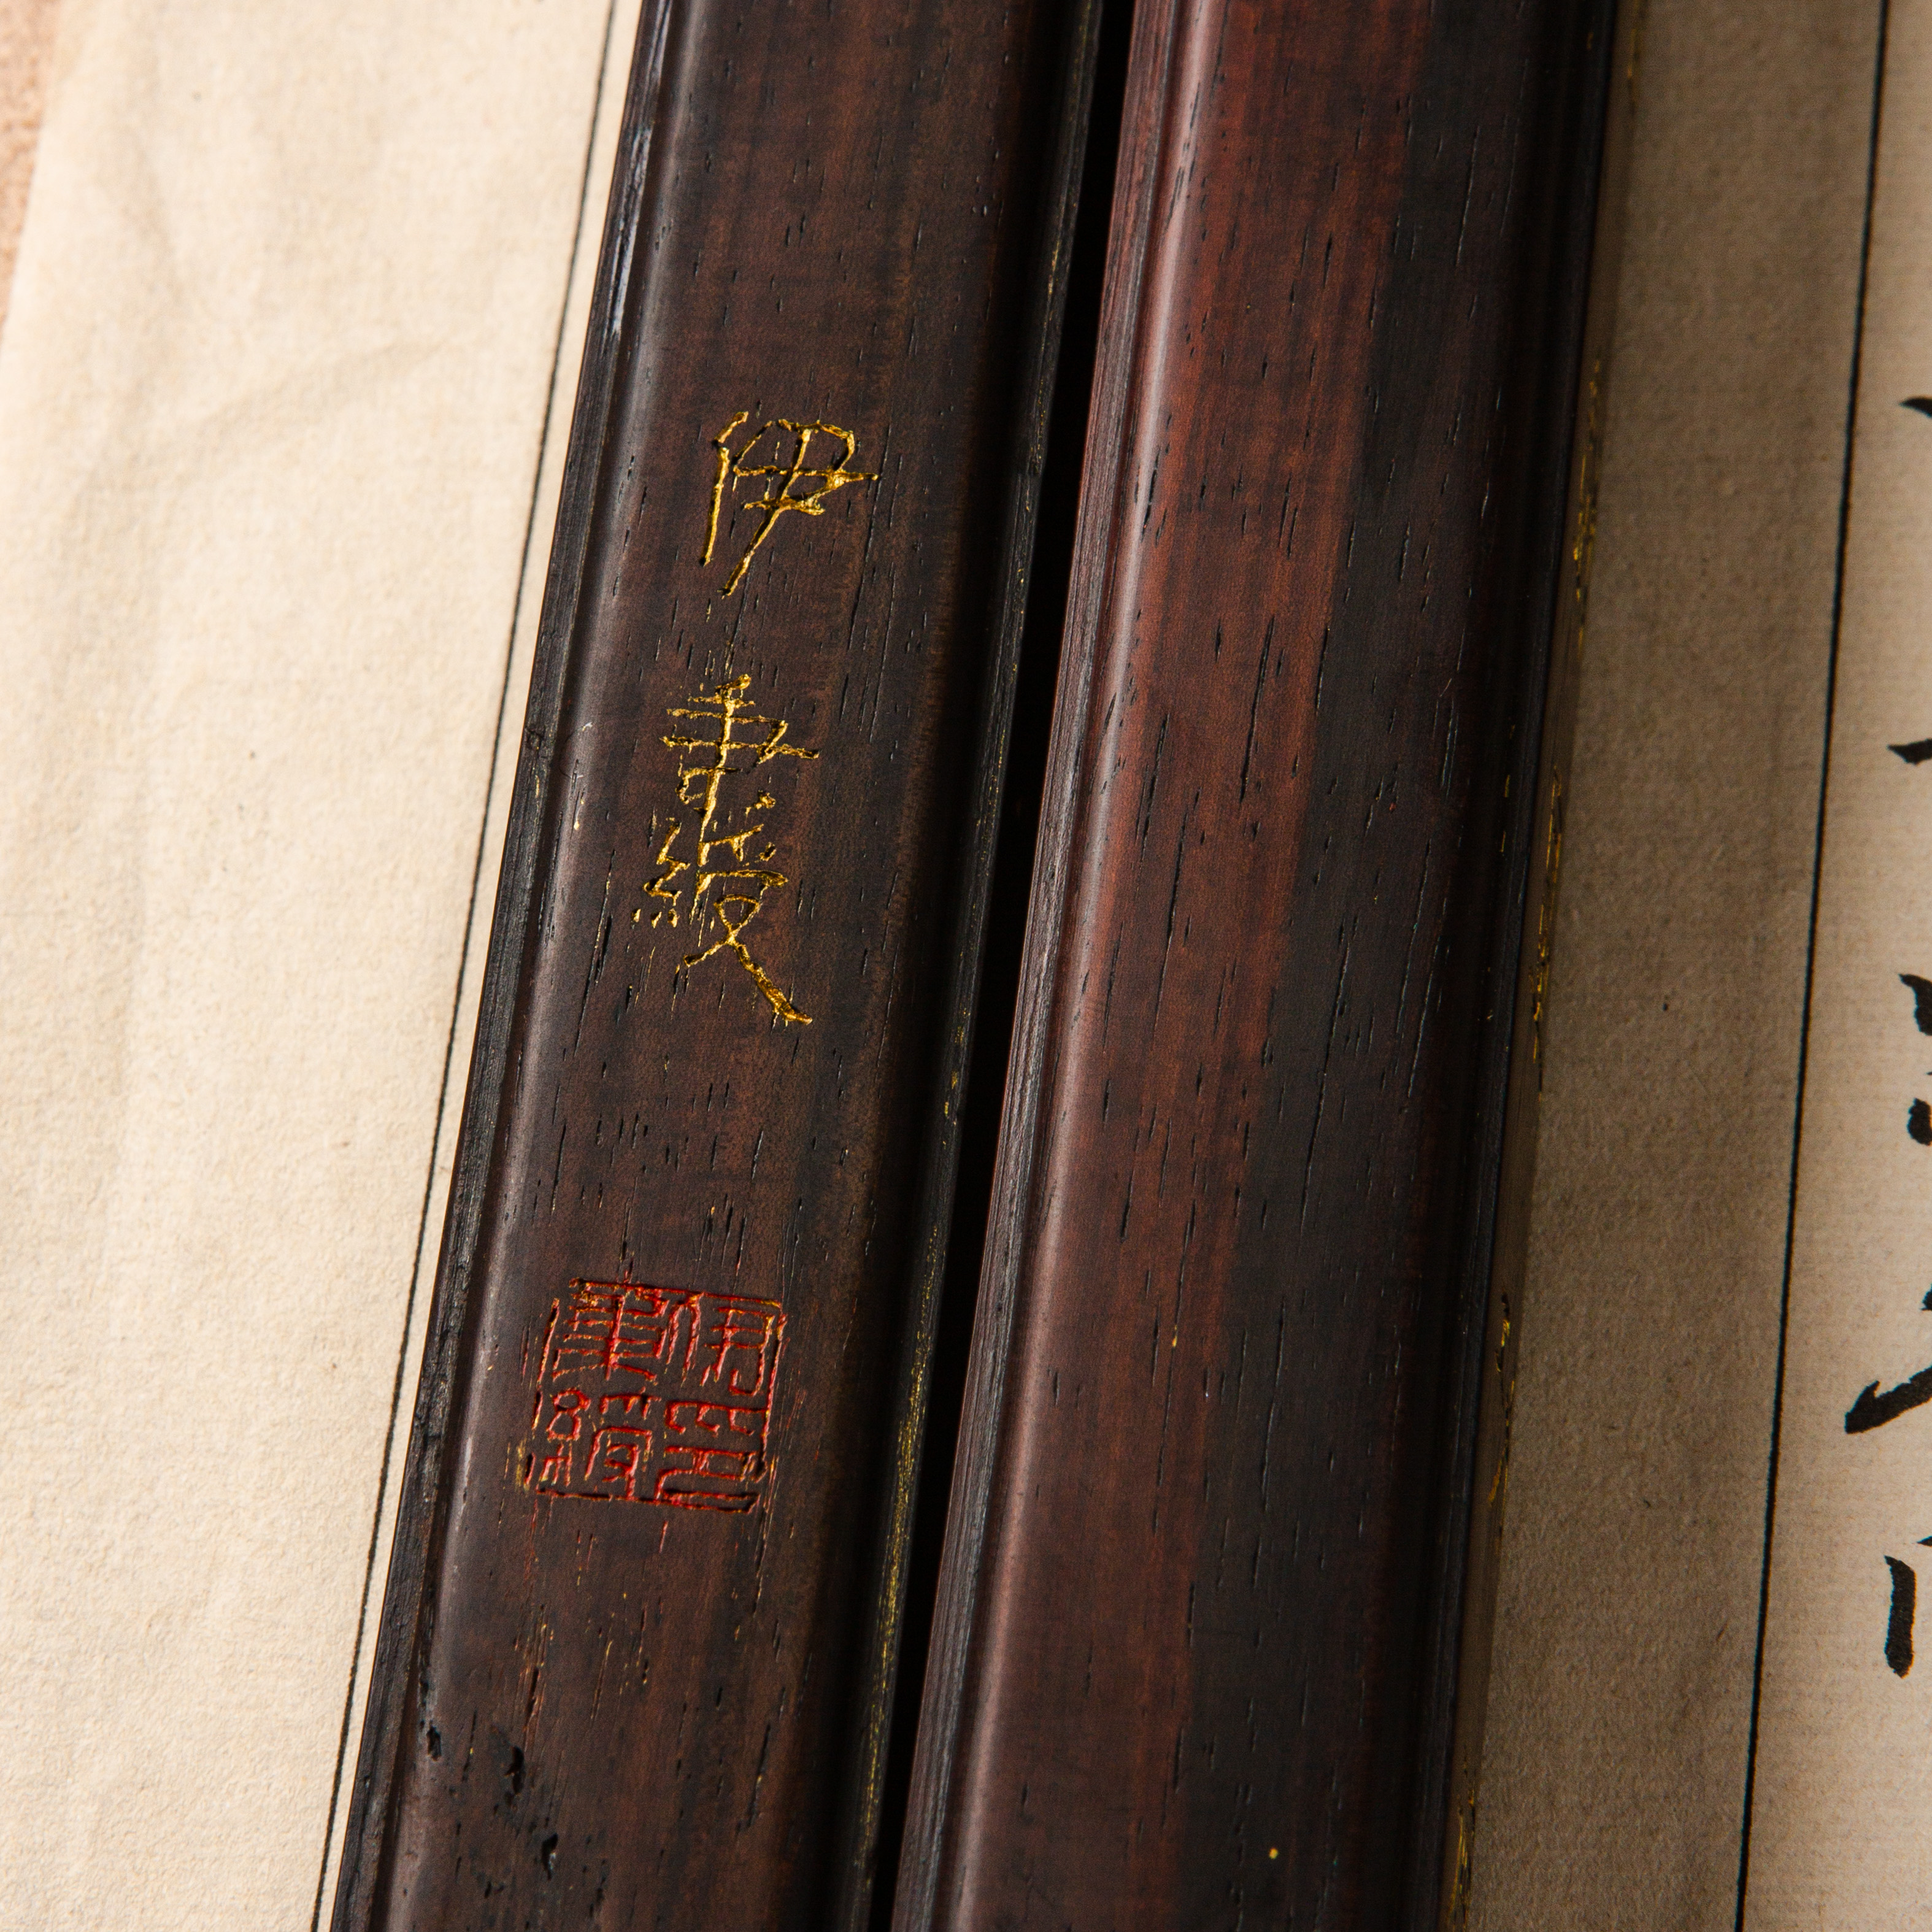 伊秉綬
伊秉綬印